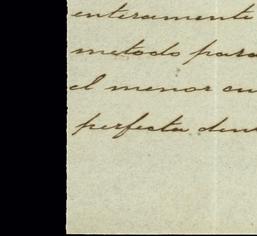 enteramente
metodo para
el menor cu
perfecta den